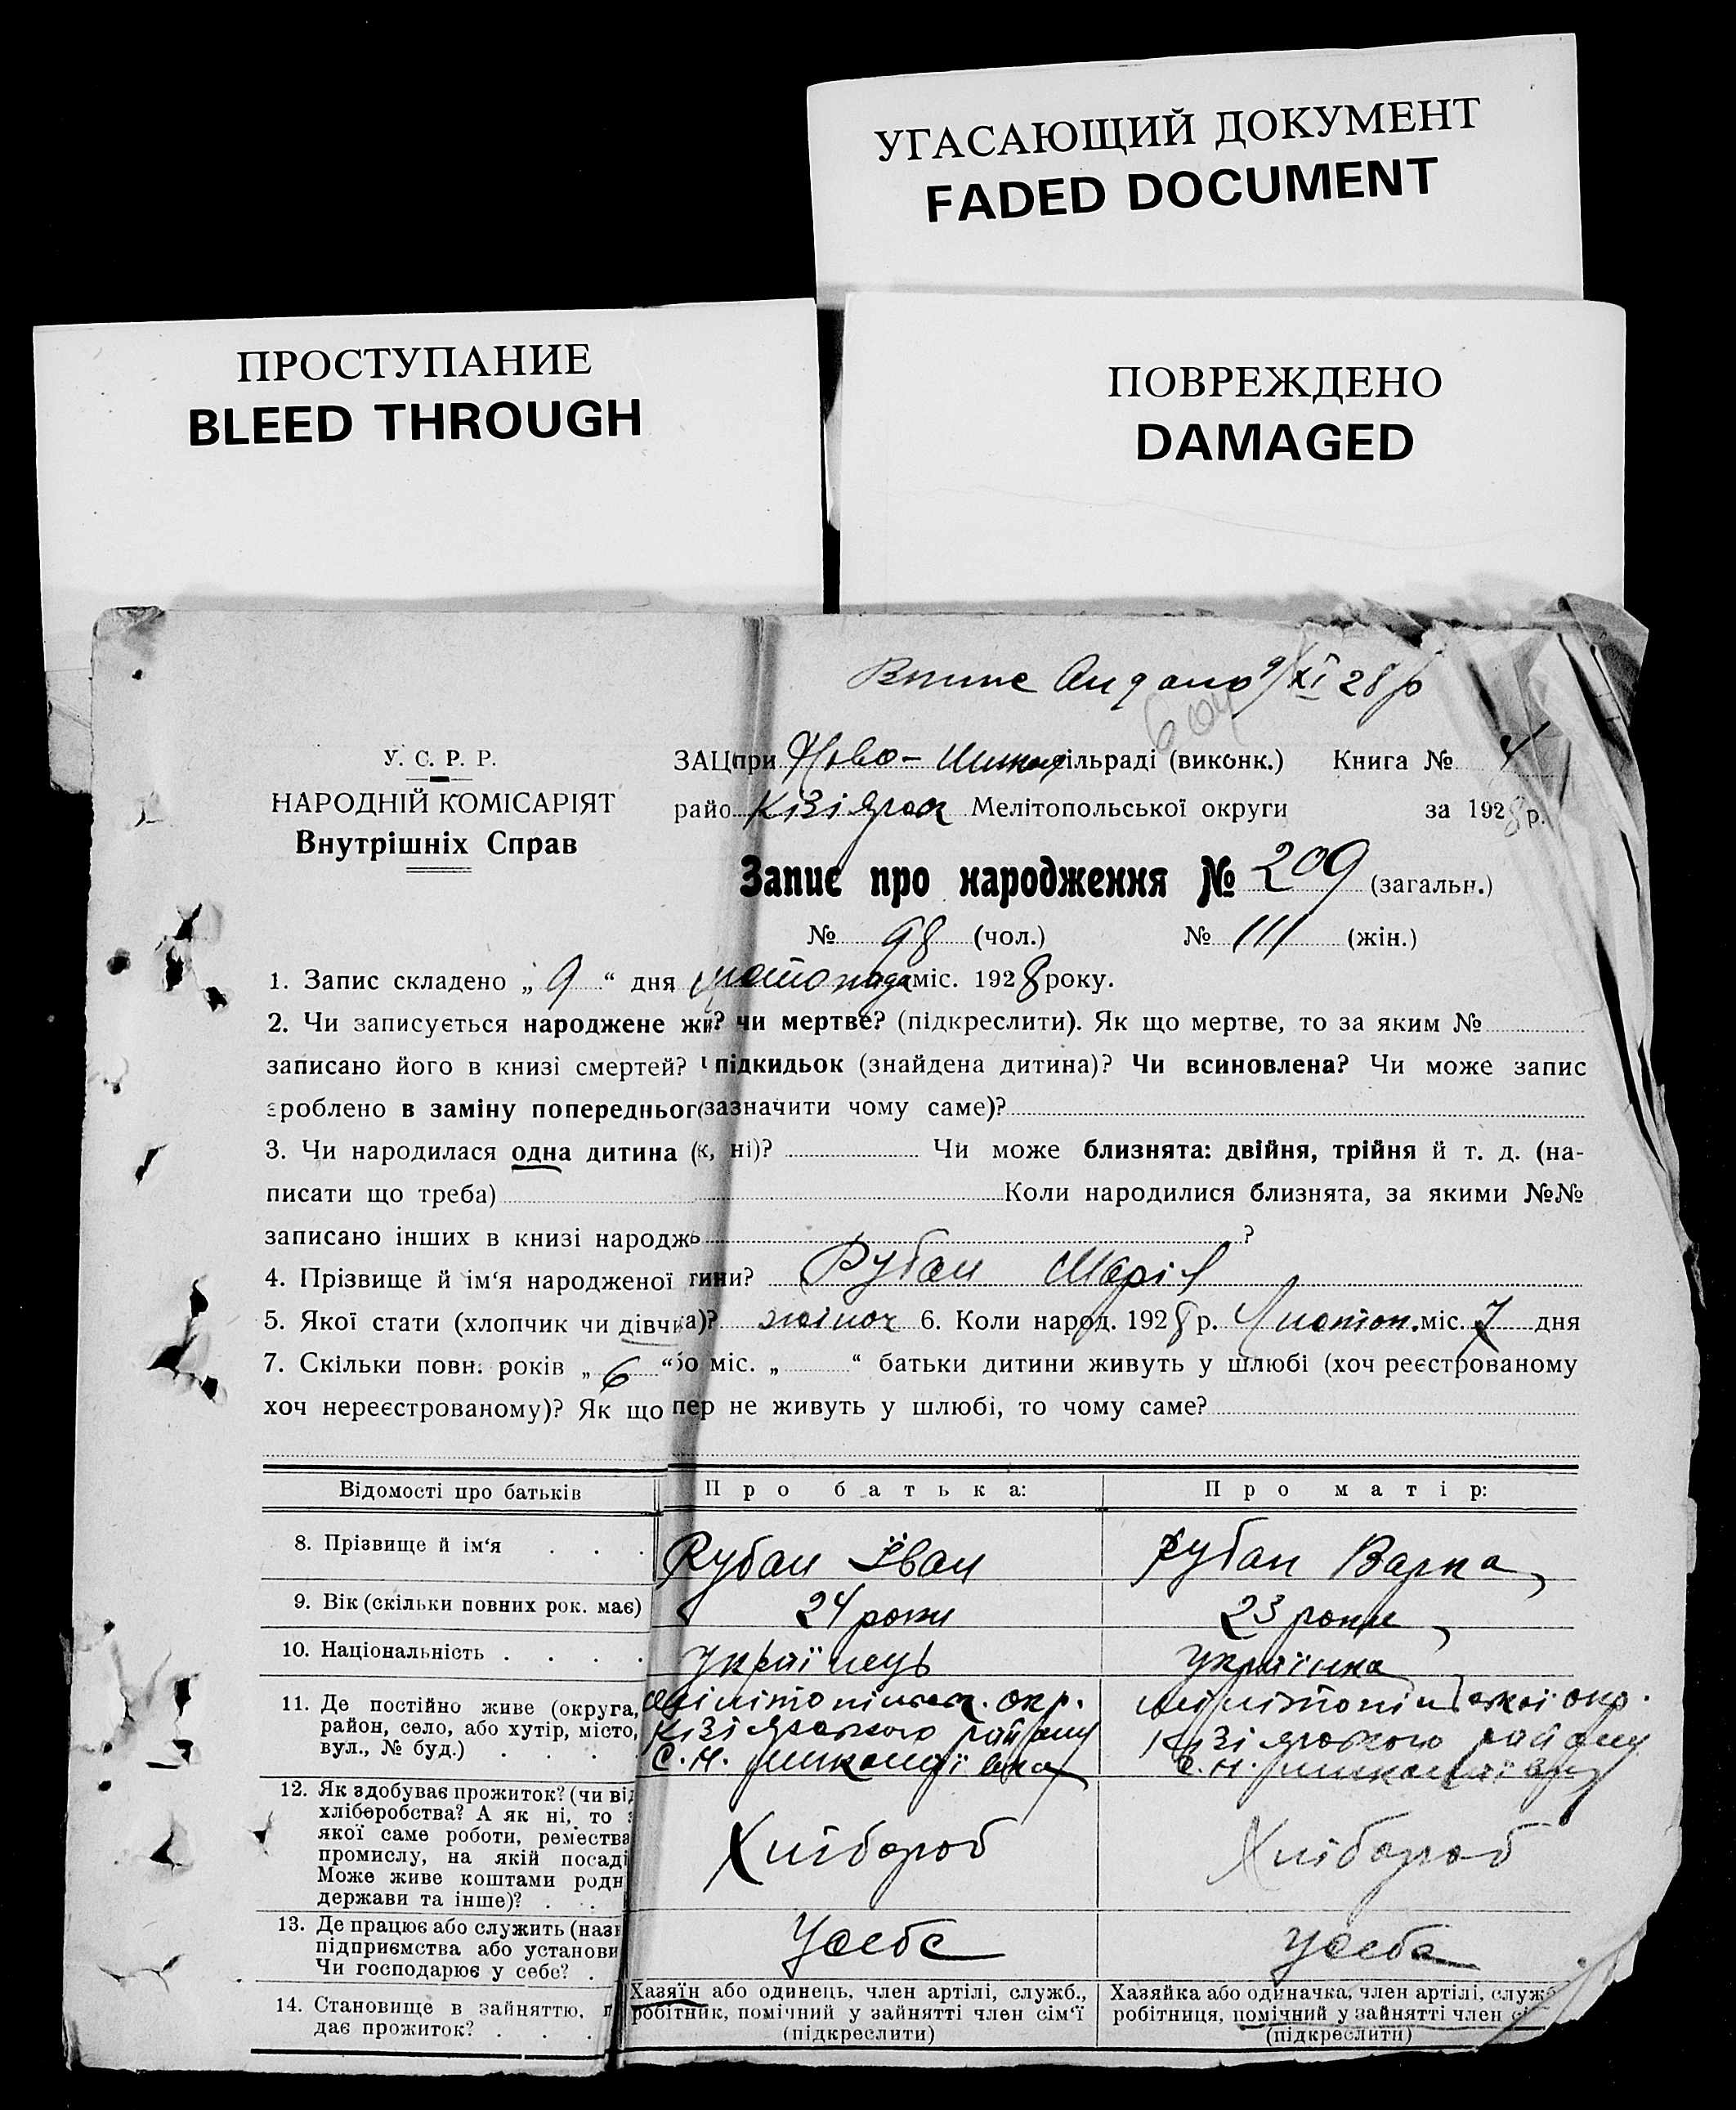 УГАСАЮЩИЙ ДОКУМЕНТ
FADED DOCUMENT
ПРОСТУПАНИЕ
BLEED THROUGH
ПОВРЕЖДЕНО
DAMAGED
9/XI 28 р
У. С. Р. Р.
НАРОДНІЙ КОМІСАРІЯТ
Внутрішніх Справ
ЗАЦ при Ново- сільраді (виконк.) Книга №
райо Кізіярск Мелітопольської округи за 1928 р.
Запис про народження № 209 (загальн.)
№ 98 (чол.) № 111 (жін.)
1. Запис складено „ 9 “ дня листопада міс. 1928 року.
2. Чи записується народжене жи? чи мертве? (підкреслити). Як що мертве, то за яким №
записано його в книзі смертей? підкидьок (знайдена дитина)? Чи всиновлена? Чи може запис
зроблено в заміну попередньог (зазначити чому саме)?
3. Чи народилася одна дитина (к, ні)? Чи може близнята: двійня, трійня й т. д. (на-
писати що треба) Коли народилися близнята, за якими №№
записано інших в книзі народж ?
4. Прізвище й ім‘я народженої тини? Рубан Марія
5. Якої стати (хлопчик чи дівчика)? жіноч 6. Коли народ. 1928 р. листоп. міс. 7 дня
7. Скільки повн. років „ 6 “ бо міс. „ “ батьки дитини живуть у шлюбі (хоч реєстрованому
хоч нереєстрованому)? Як що пер не живуть у шлюбі, то чому саме?
Відомості про батьків Про батька: Про матір:
8. Прізвище й ім‘я Рубан Іван Рубан Варка
9. Вік (скільки повних рок. має) 24 роки 23 роки
10. Національність українець українка
11. Де постійно живе (округа, мілітопільск. окр. мілітопільскої окр.
район, село, або хутір, місто, Кізіярського району Кізіярського району
вул., № буд.) с. Н. миколаївка с. Н. миколаївка
12. Як здобуває прожиток? (чи від
хліборобства? А як ні, то з
якої саме роботи, ремества
промислу, на якій посаді Хлібороб Хлібороб
Може живе коштами родн
держави та інше)?
13. Де працює або служить (назв
підприємства або установи Усебе Усебе
Чи господарює у себе?
14. Становище в зайняттю, Хазяїн або одинець, член артілі, служб., Хазяйка або одиначка, член артілі, служб
дає прожиток? робітник, помічний у зайнятті член сім‘ї робітниця, помічний у зайнятті член сі
(підкреслити) (підкреслити)